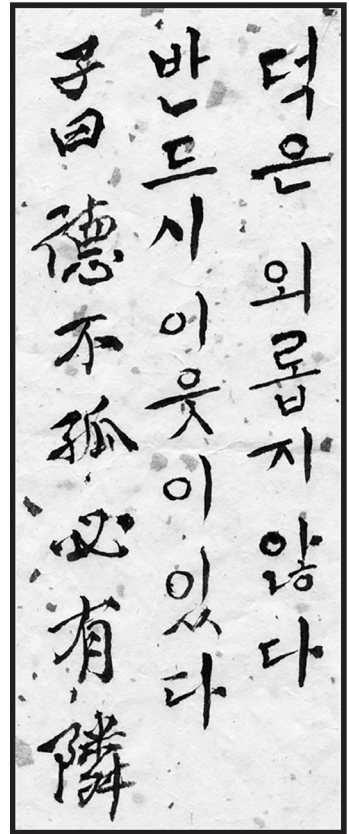 덕은 외롭지 않다
반드시 이웃이 있다
子曰 德不孤 必有隣